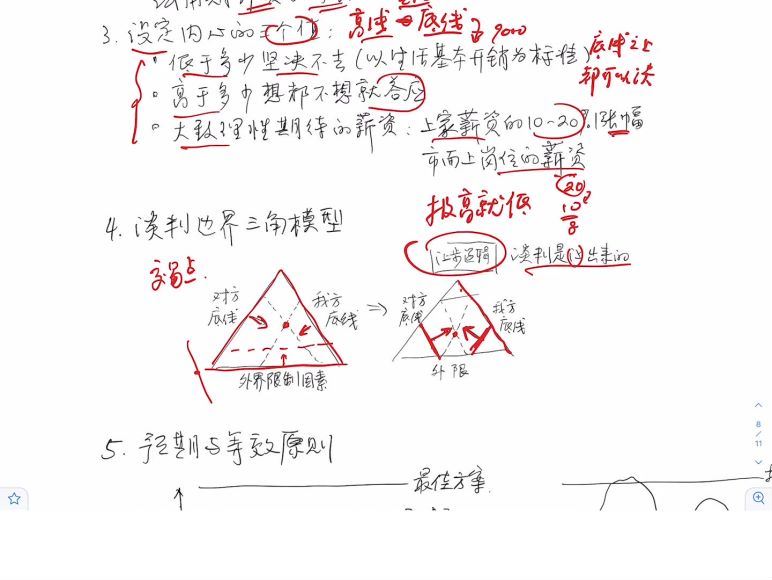 3. 设定内心的三个值： 高线 底线 9000
· 低于多少坚决不去（以生活基本开销为标准） 底线之上
· 高于多少想都不想就答应 都可以谈
· 大致理性期待的薪资：上家薪资的10-20%涨幅
市面上岗位的薪资
20
10
8
报高就低
4. 谈判边界三角模型
让步逻辑 谈判是 出来的
交易点
对方底线 我方底线 ⇒ 对方底线 我方底线
外界限制因素 外限
5. 预期与等效原则
最佳方案
8
/
11